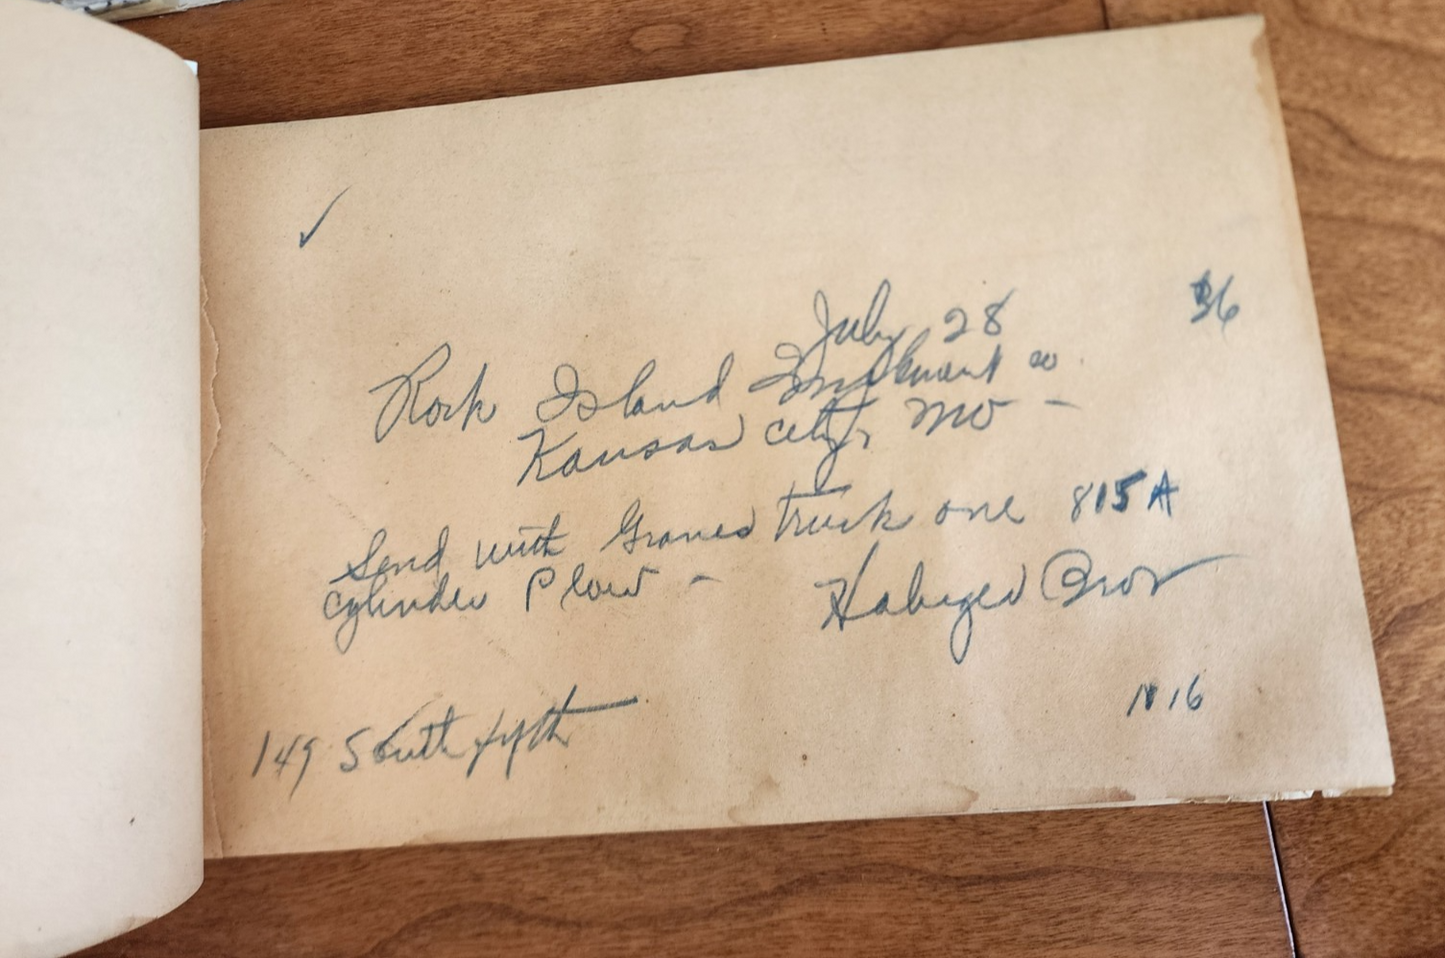 July 28 36
Rock Island Implement co.
Kansas city, Mo -
Send with Graves truck one 815 A
cylinder Plow -
Habiger Bros
16
149 South fifth